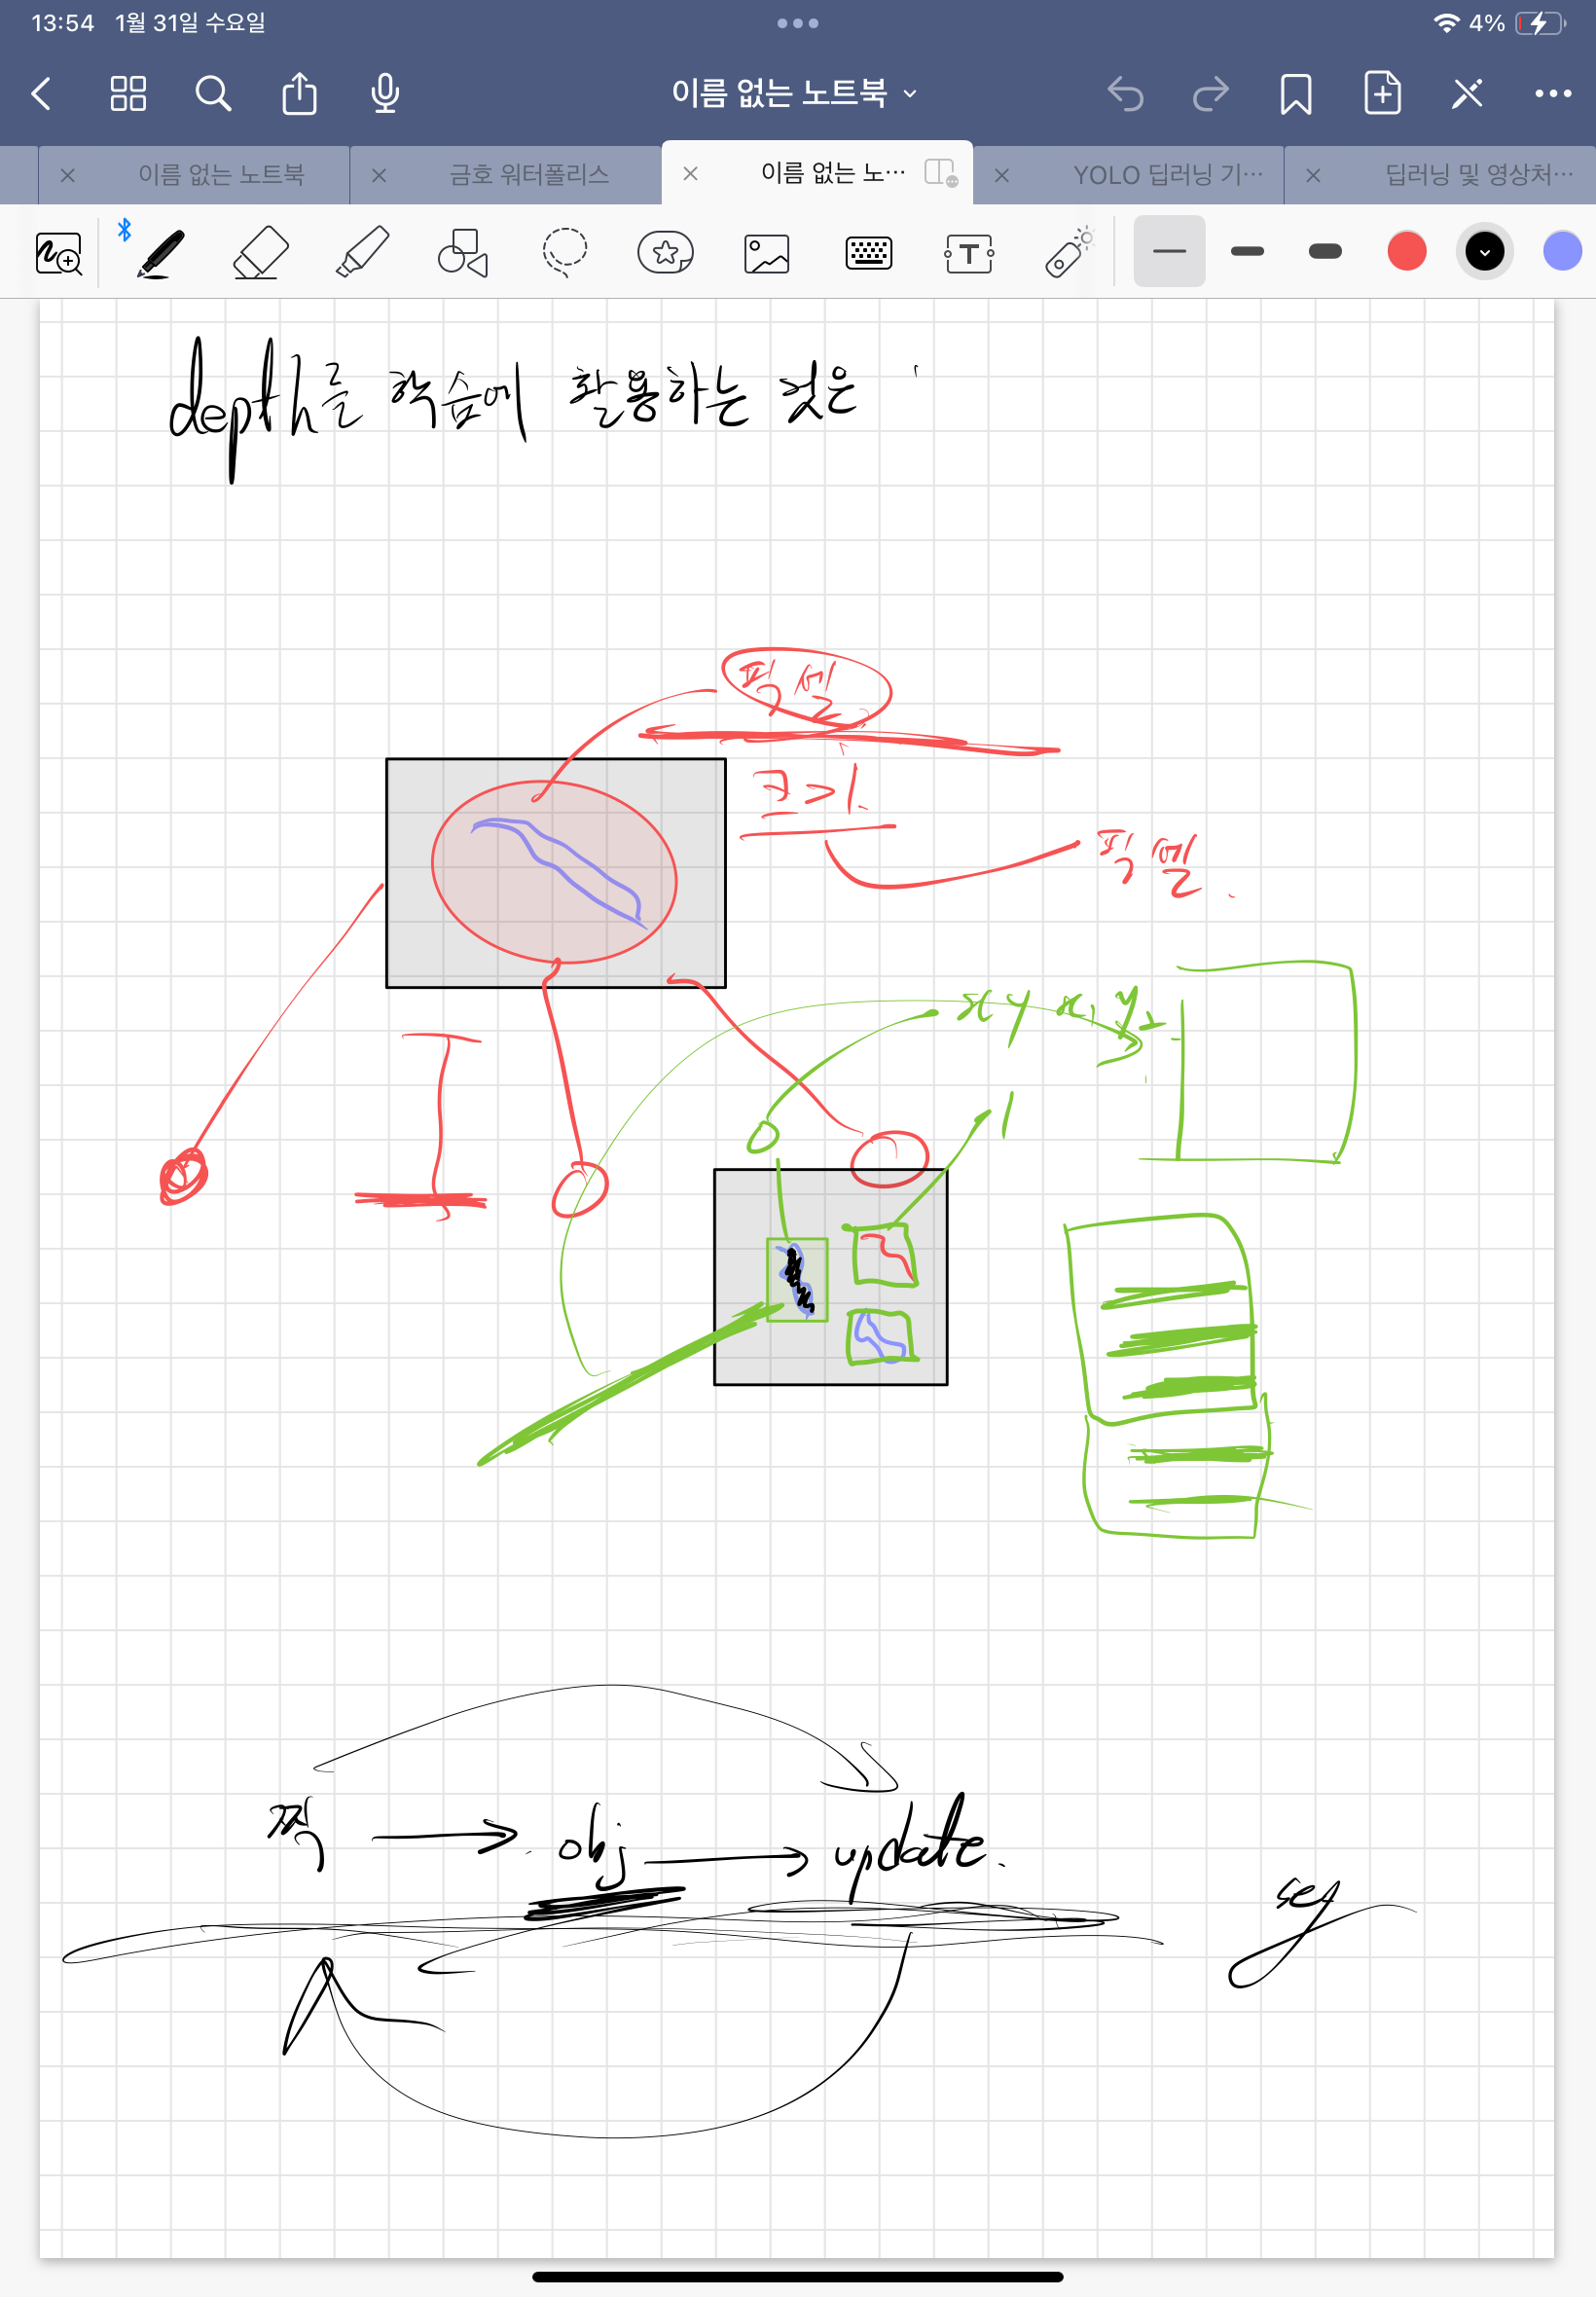 13:54 1월 31일 수요일
4%
이름 없는 노트북
이름 없는 노트북
금호 워터폴리스
이름 없는 노…
YOLO 딥러닝 기…
딥러닝 및 영상처…
T
depth를 학습에 활용하는 것은
픽셀
크기.
픽셀.
x y x, y
0
1
찍 → obj → update.
seg